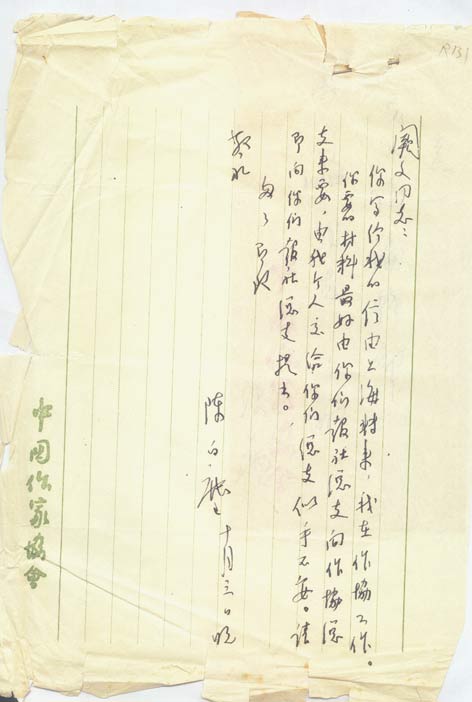 R131
阚文同志：
你写给我的信由上海转来，我在作协工作。
你要的材料最好由你们报社总支向作协总
支来要，由我个人交给你们总支似乎不妥。请
即向你们报社总支提出。
匆匆即致
敬礼
陈白尘
十月三日晚
中国作家协会